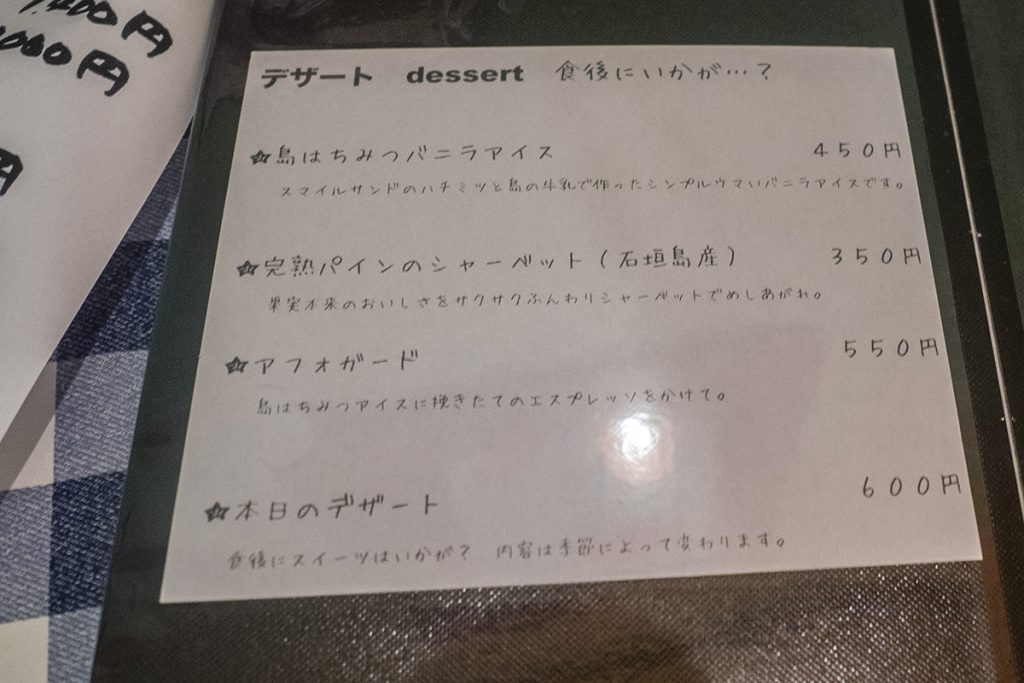 000円
デザート dessert 食後にいかが…？
★島はちみつバニラアイス 450円
スマイルサンドのハチミツと島の牛乳で作ったシンプルウマいバニラアイスです。
★完熟パインのシャーベット（石垣島産） 350円
果実本来のおいしさをサクサクふんわりシャーベットでめしあがれ。
★アフォガード 550円
島はちみつアイスに挽きたてのエスプレッソをかけて。
★本日のデザート 600円
食後にスイーツはいかが？ 内容は季節によって変わります。